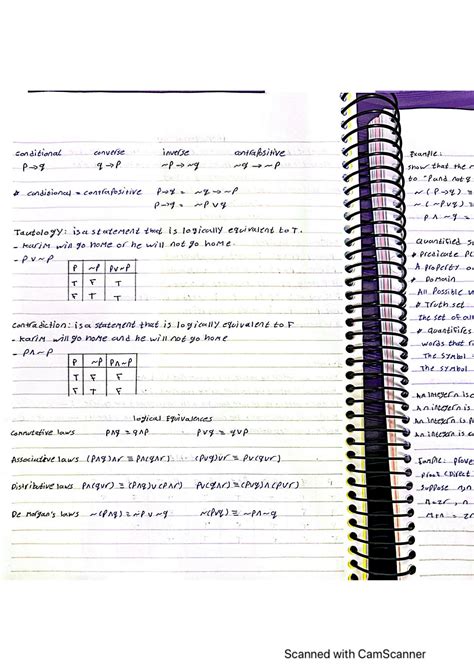 conditional converse inverse contrapositive
P→q q→P ~P→~q ~q→~P
# conditional = contrapositive P→q = ~q→~P
P→q = ~P∨q
Tautology: is a statement that is logically equivalent to T.
- Karim will go home or he will not go home.
- P∨~P
P ~P P∨~P
T F T
F T T
contradiction: is a statement that is logically equivalent to F
- Karim will go home and he will not go home
- P∧~P
P ~P P∧~P
T F F
F T F
logical Equivalences
Commutative laws P∧q ≡ q∧P P∨q ≡ q∨P
Associative laws (P∧q)∧r ≡ P∧(q∧r) (P∨q)∨r ≡ P∨(q∨r)
Distributive laws P∧(q∨r) ≡ (P∧q)∨(P∧r) P∨(q∧r) ≡ (P∨q)∧(P∨r)
De Morgan's laws ~(P∧q) ≡ ~P∨~q ~(P∨q) ≡ ~P∧~q
Example:
show that the
to "P and not q
~(P→q) ≡
~(~P∨q) ≡
P∧~q
Quantified
# Predicate
A property
# Domain
All possible
# Truth set
The set of all
# Quantifires
words that
The symbol
The symbol
An integer n is
An integer n is
An integer n is
prove
proof (Direct
Suppose m,n
m=2r,
m+n = 2r
Scanned with CamScanner